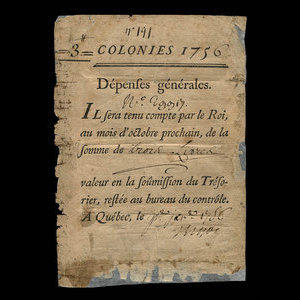 n° 191
3 COLONIES 1756
Dépenses générales.
IL sera tenu compte par le Roi,
au mois d'octobre prochain, de la
somme de trois Livres
valeur en la soûmission du Tréso-
rier, restée au bureau du contrôle.
A Québec, le 1756